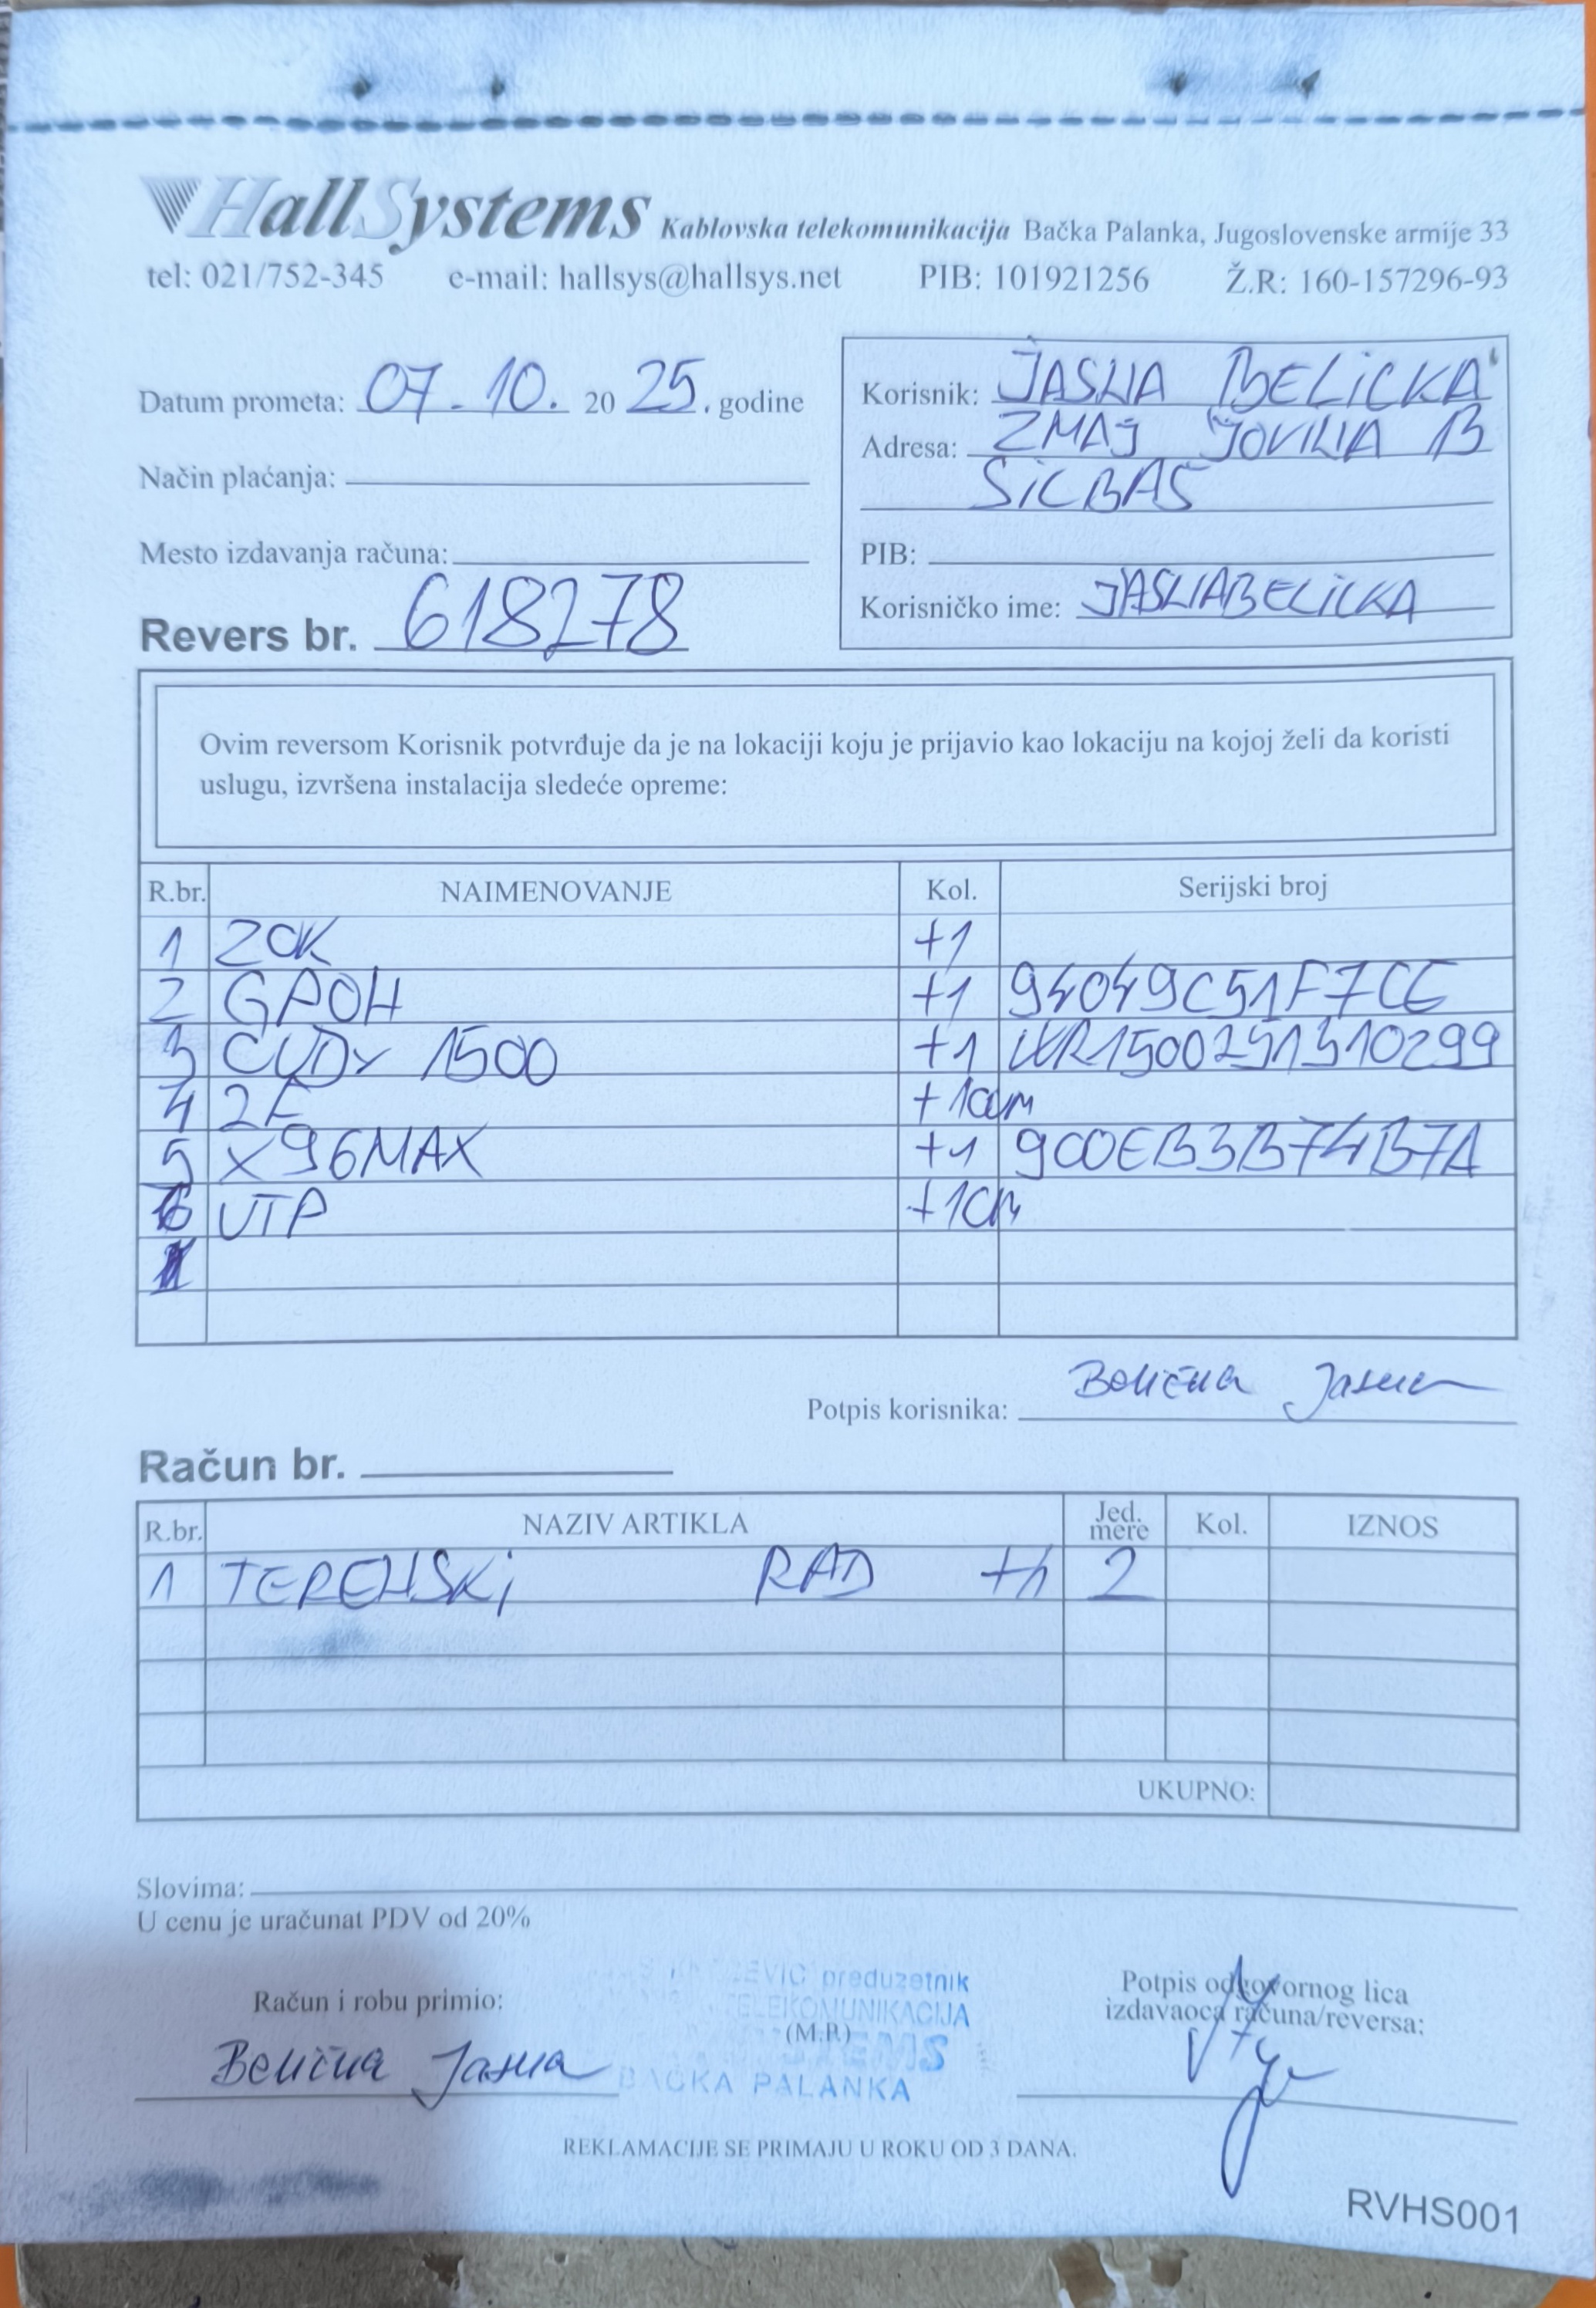 HallSystems Kablovska telekomunikacija Bačka Palanka, Jugoslovenske armije 33
tel: 021/752-345 e-mail: hallsys@hallsys.net PIB: 101921256 Ž.R: 160-157296-93
Datum prometa: 07. 10. 20 25. godine
Način plaćanja:
Mesto izdavanja računa:
Revers br. 618278
Korisnik: JASNA BELIČKA
Adresa: ZMAJ JOVINA 13
SILBAŠ
PIB:
Korisničko ime: JASNABELICKA
Ovim reversom Korisnik potvrđuje da je na lokaciji koju je prijavio kao lokaciju na kojoj želi da koristi
uslugu, izvršena instalacija sledeće opreme:
R.br. NAIMENOVANJE Kol. Serijski broj
1 ZOK +1
2 GPON +1 94049C51F7CE
3 CUDY 1500 +1 WR1500251310299
4 2F +100m
5 X96MAX +1 9C0EB3B74B7A
6 UTP +10m
Potpis korisnika: Belička Jasna
Račun br.
R.br. NAZIV ARTIKLA Jed. mere Kol. IZNOS
1 TERENSKI RAD +h 2
UKUPNO:
Slovima:
U cenu je uračunat PDV od 20%
Račun i robu primio:
Belička Jasna
preduzetnik
TELEKOMUNIKACIJA
(M.P.)
BAČKA PALANKA
Potpis odgovornog lica
izdavaoca računa/reversa:
REKLAMACIJE SE PRIMAJU U ROKU OD 3 DANA.
RVHS001